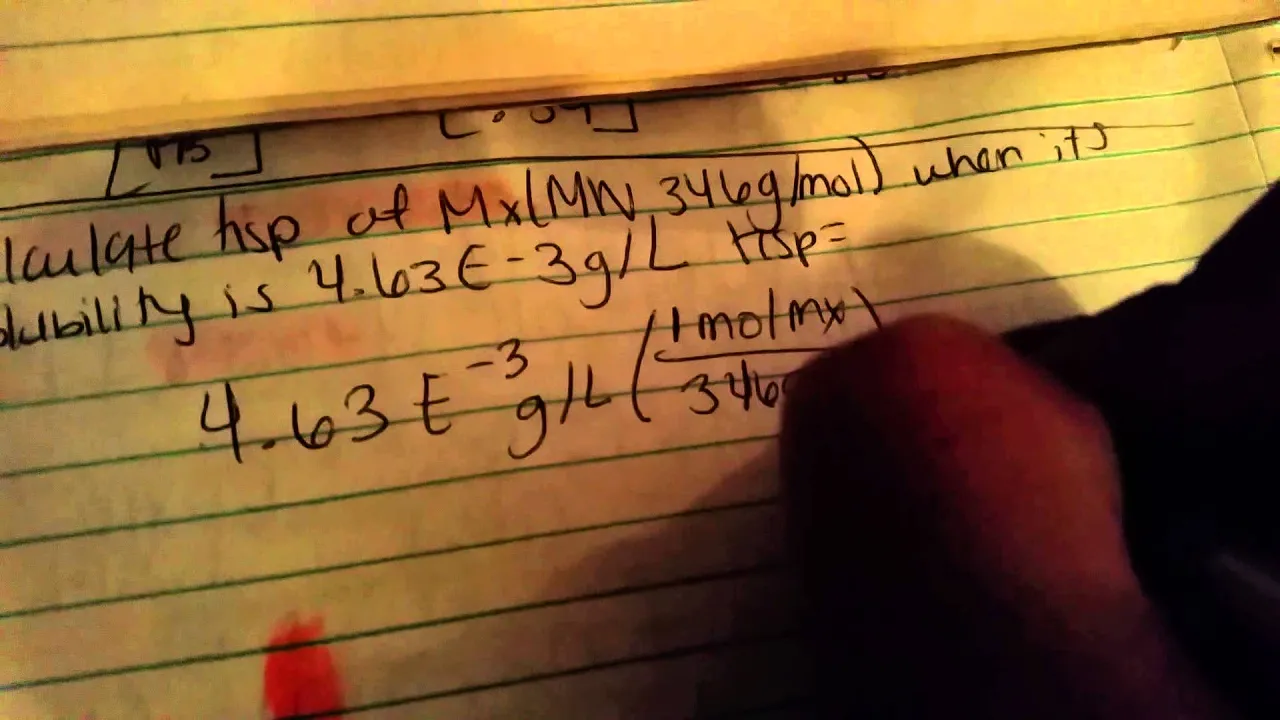 lculate hsp of Mx(MW 346g/mol) when its
olubility is 4.63E-3g/L Hsp=
4.63E-3 g/L (1molmx)
346